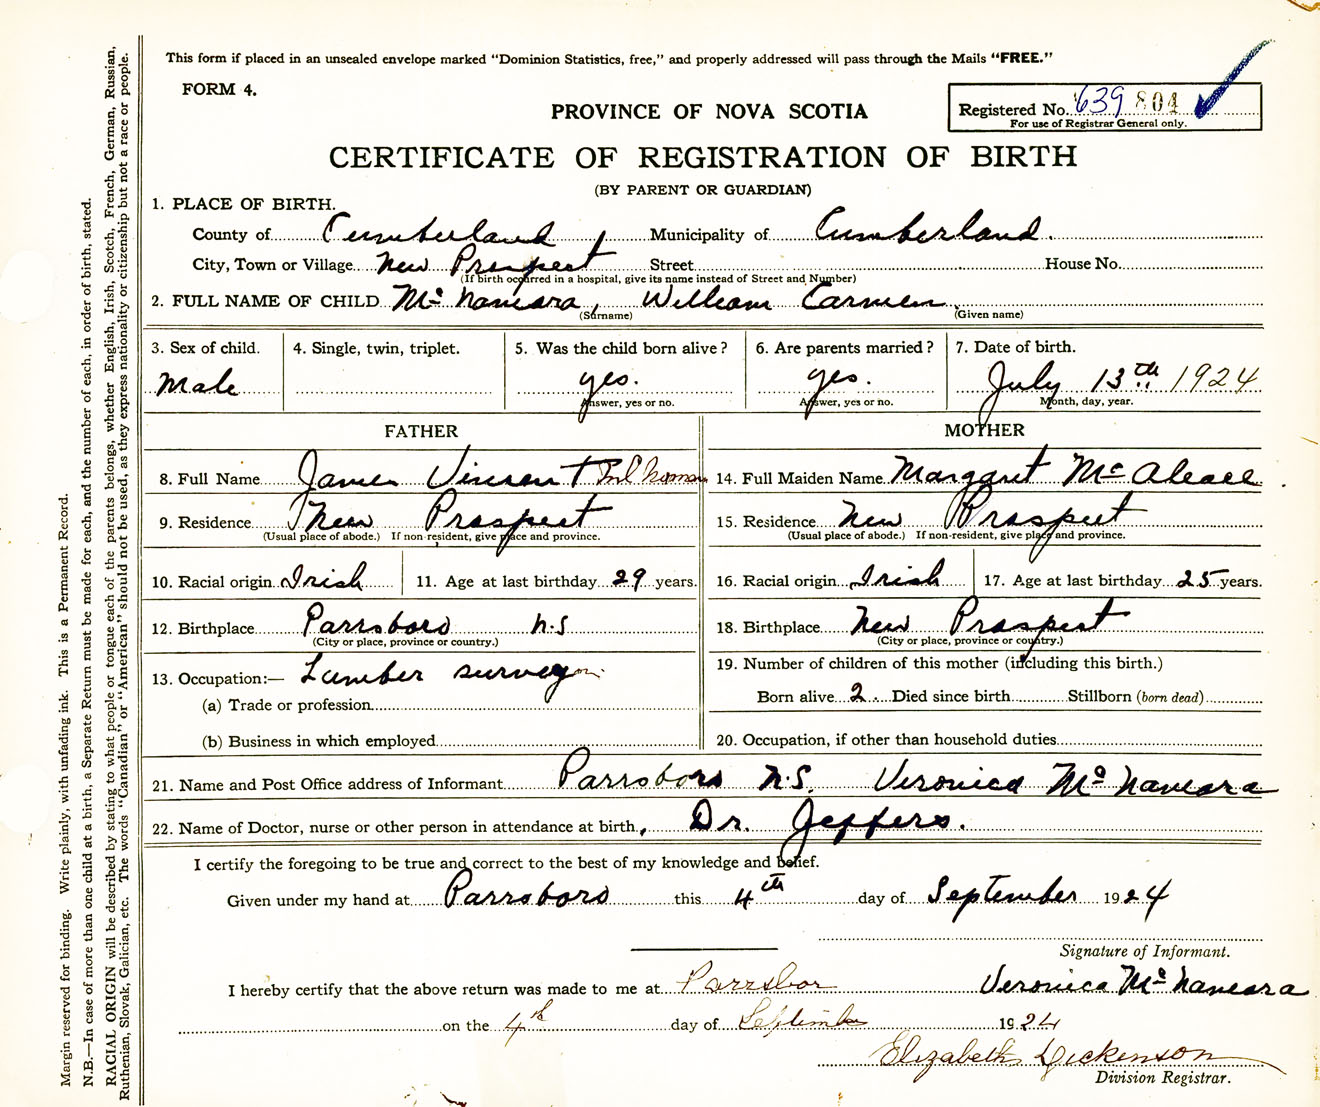 This form if placed in an unsealed envelope marked "Dominion Statistics, free," and properly addressed will pass through the Mails "FREE."
FORM 4.
PROVINCE OF NOVA SCOTIA
Registered No. 639 804
For use of Registrar General only.
CERTIFICATE OF REGISTRATION OF BIRTH
(BY PARENT OR GUARDIAN)
1. PLACE OF BIRTH.
County of Cumberland Municipality of Cumberland.
City, Town or Village New Prospect Street House No.
(If birth occurred in a hospital, give its name instead of Street and Number)
2. FULL NAME OF CHILD Mc Namara, William Carmen
(Surname) (Given name)
3. Sex of child. 4. Single, twin, triplet. 5. Was the child born alive? 6. Are parents married? 7. Date of birth.
Male yes. yes. July 13th 1924
Answer, yes or no. Answer, yes or no. Month, day, year.
FATHER MOTHER
8. Full Name James Vincent 14. Full Maiden Name Margaret Mc Aleese
9. Residence New Prospect 15. Residence New Prospect
(Usual place of abode.) If non-resident, give place and province. (Usual place of abode.) If non-resident, give place and province.
10. Racial origin Irish 11. Age at last birthday 29 years. 16. Racial origin Irish 17. Age at last birthday 25 years.
12. Birthplace Parrsboro N.S 18. Birthplace New Prospect
(City or place, province or country.) (City or place, province or country.)
13. Occupation:— Lumber surveyor 19. Number of children of this mother (including this birth.)
(a) Trade or profession Born alive 2 Died since birth Stillborn (born dead)
(b) Business in which employed 20. Occupation, if other than household duties
21. Name and Post Office address of Informant Parrsboro N.S. Veronica Mc Namara
22. Name of Doctor, nurse or other person in attendance at birth, Dr. Jeffers.
I certify the foregoing to be true and correct to the best of my knowledge and belief.
Given under my hand at Parrsboro this 4th day of September 1924
Signature of Informant.
I hereby certify that the above return was made to me at Parrsboro Veronica Mc Namara
on the 4th day of September 1924
Elizabeth Dickenson
Division Registrar.
Margin reserved for binding. Write plainly, with unfading ink. This is a Permanent Record.
N.B.—In case of more than one child at a birth, a Separate Return must be made for each, and the number of each, in order of birth, stated.
RACIAL ORIGIN will be described by stating to what people or tongue each of the parents belongs, whether English, Irish, Scotch, French, German, Russian,
Ruthenian, Slovak, Galician, etc. The words "Canadian" or "American" should not be used, as they express nationality or citizenship but not a race or people.